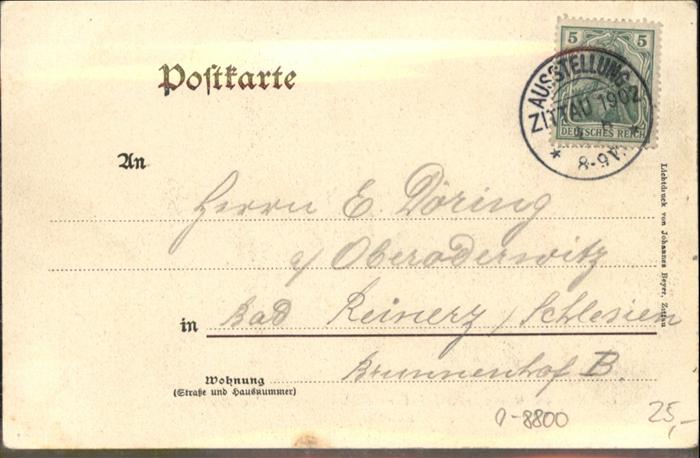 5 5
AUSSTELLUNG
ZITTAU 1902
* *
8-9V.
DEUTSCHES REICH
Postkarte
An
Herrn E. Döring
a/ Oberoderwitz
in Bad Reinerz / Schlesien
Wohnung Brunnenhof B.
(Straße und Hausnummer)
Lichtdruck von Johannes Beyer, Zittau
0-8800
25,-